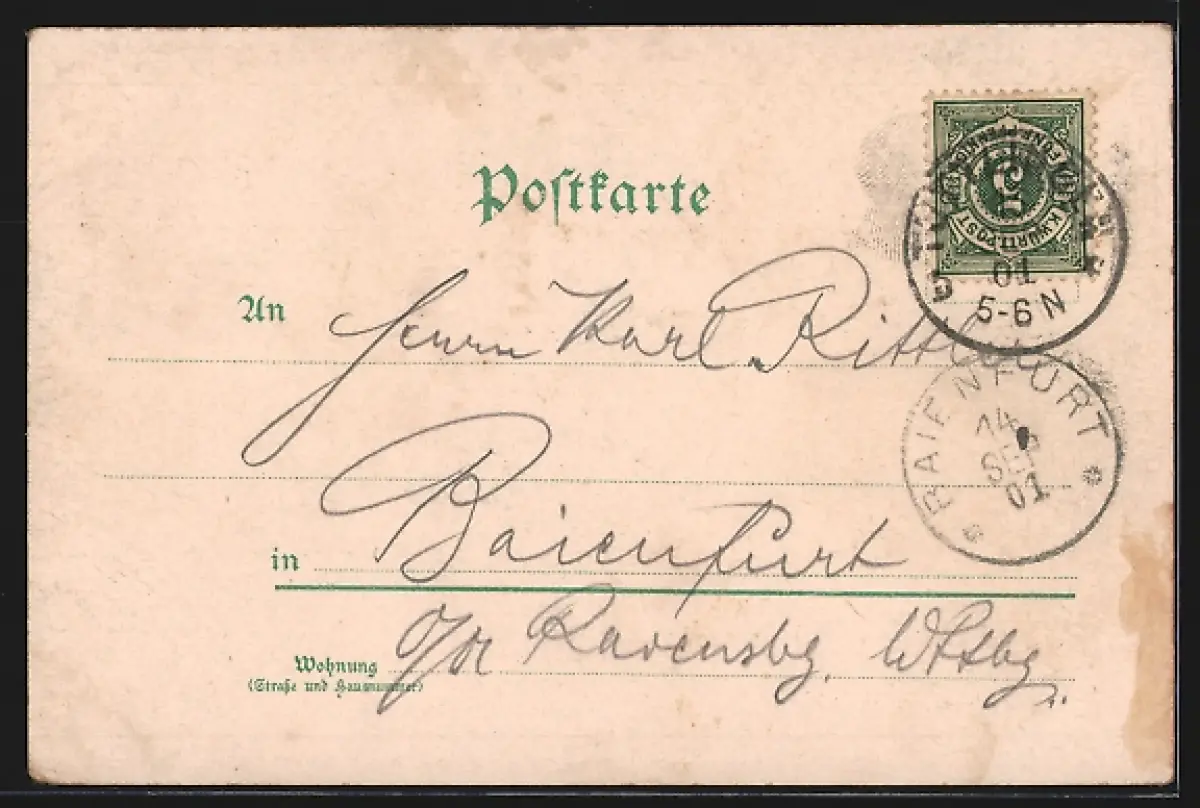 Postkarte
FÜNF PFENNIG
5
K. WÜRTT. POST
01
5-6 N
An
Herrn Karl
BAIENFURT
14
SEP
01
in
Baienfurt
o/a Ravensbg. Wttbg.
Wohnung
(Straße und Hausnummer)